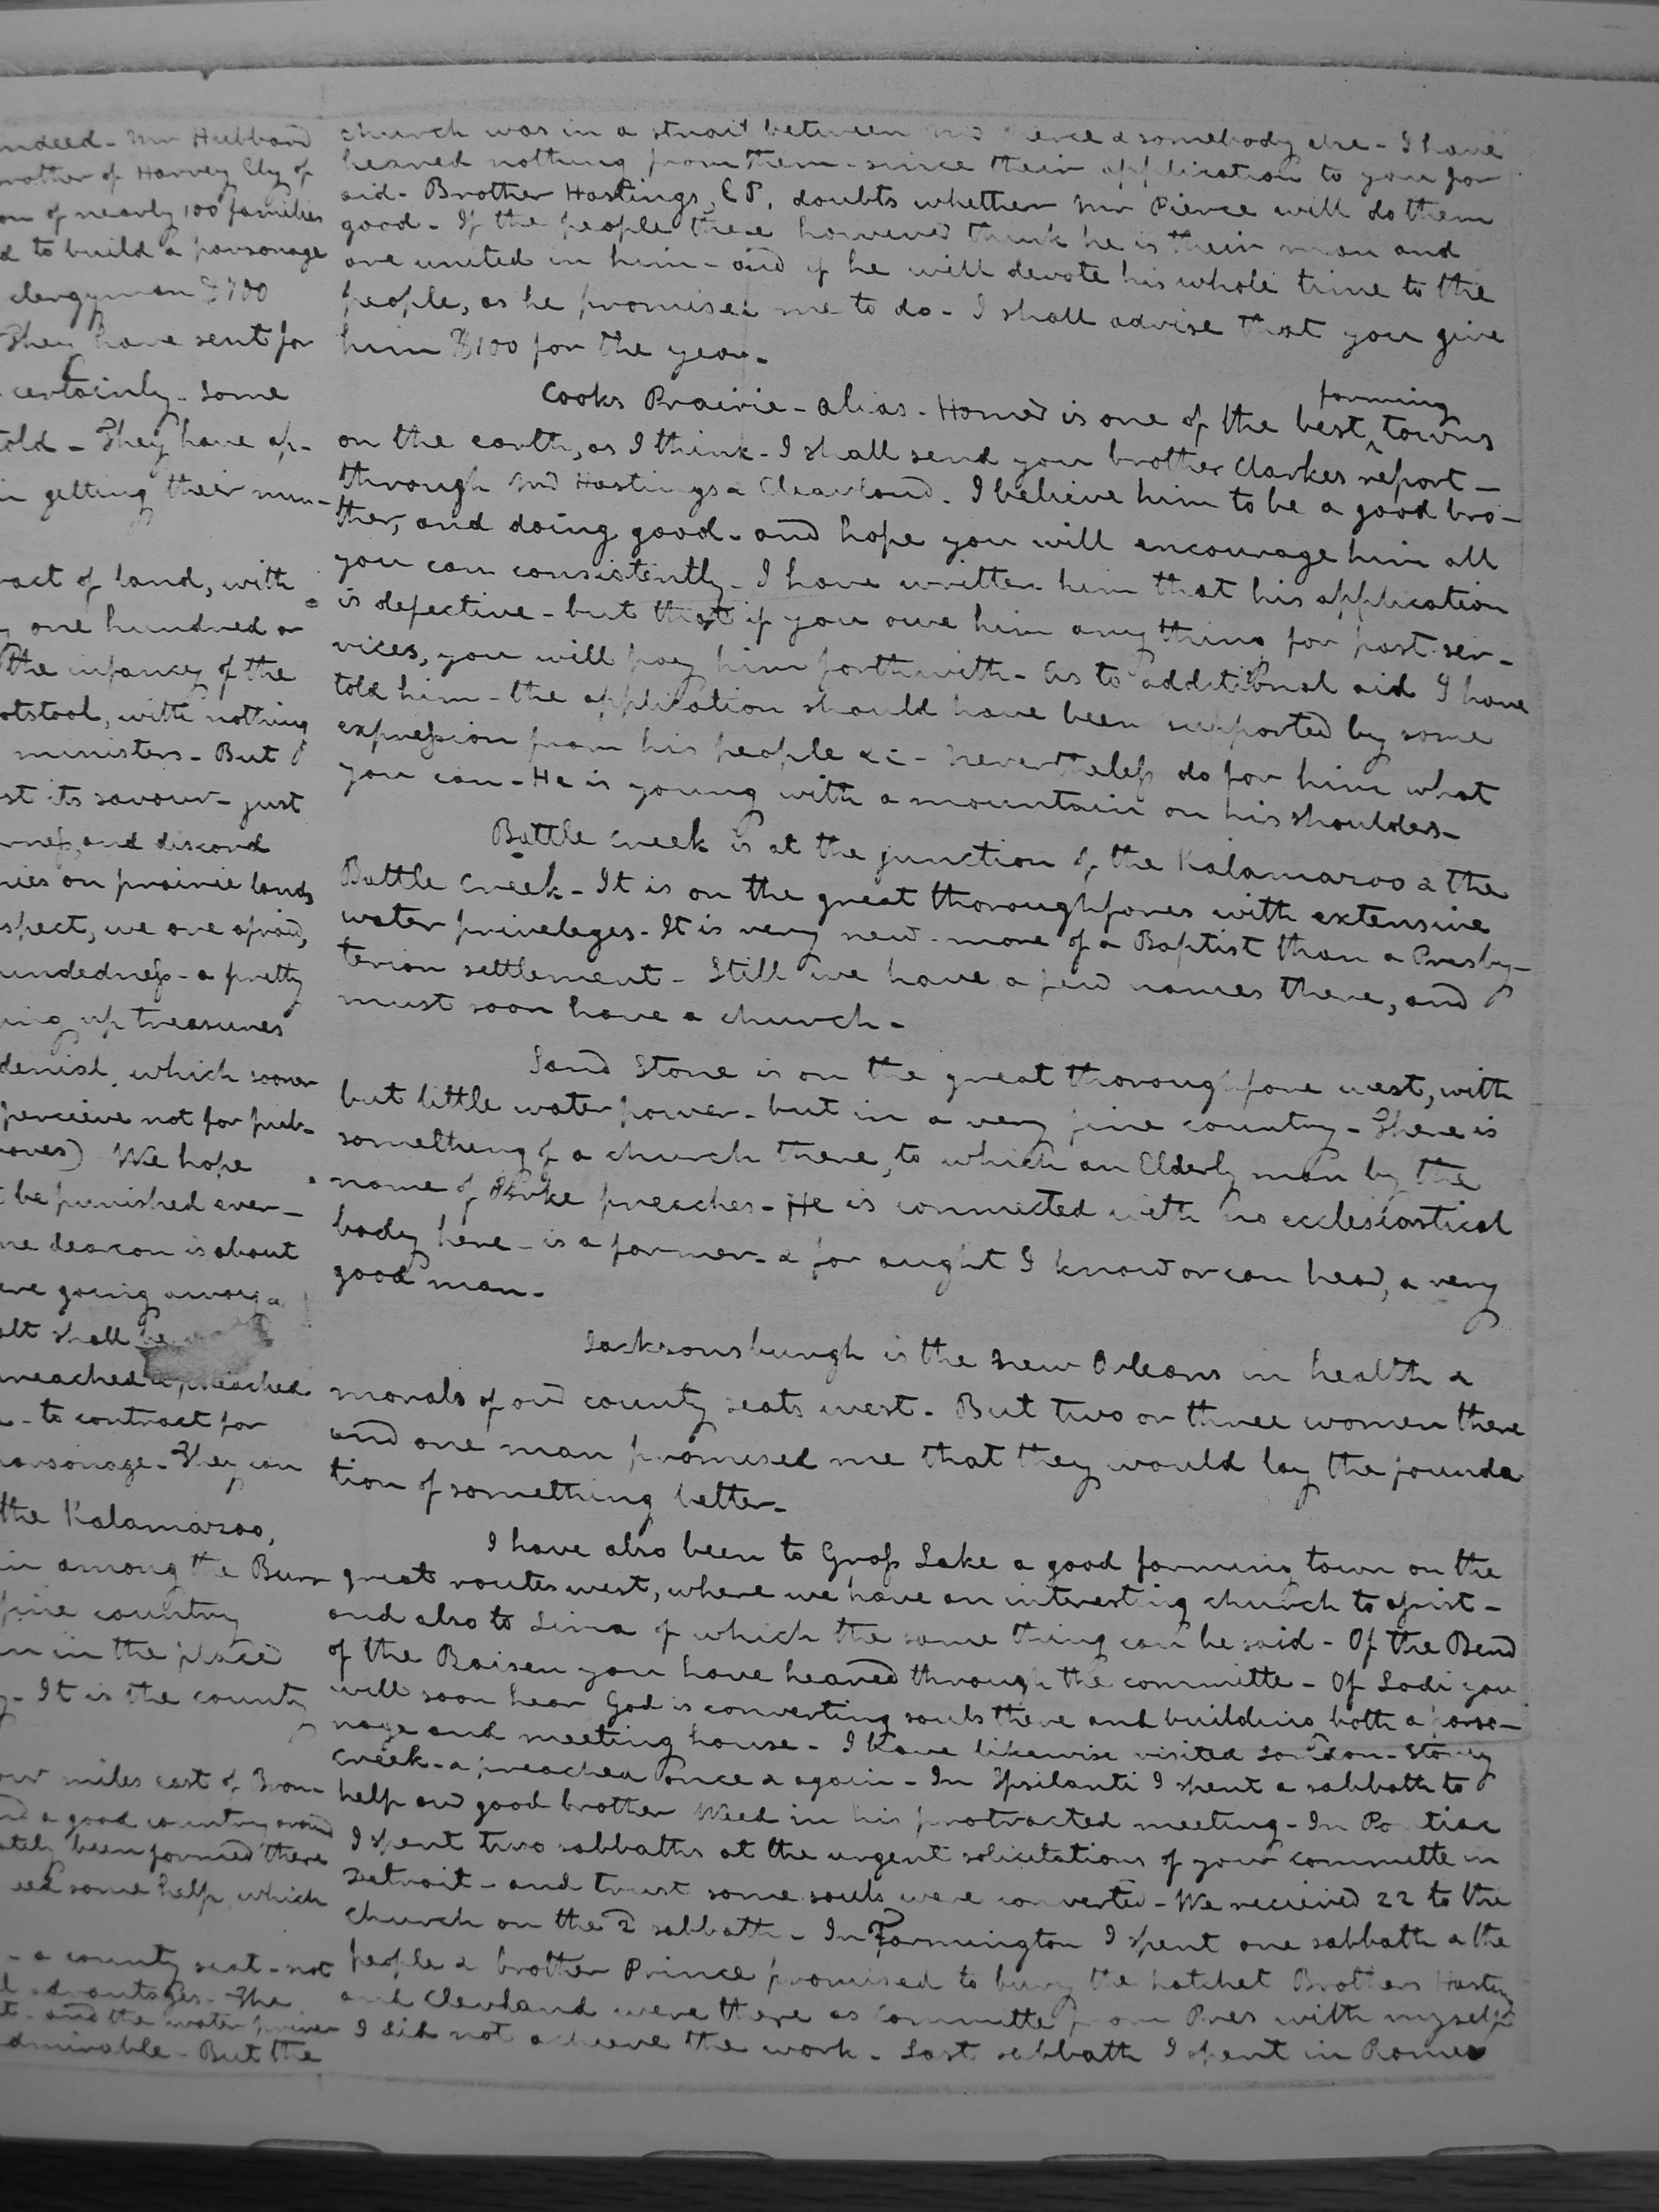 indeed - Mr Hubbard
brother of Harvey Ely of
on of nearly 100 families
d to build a parsonage
clergyman $700
They have sent for
certainly - some
told - They have ap-
in getting their min-
ract of land, with
one hundred or
the infancy of the
otstool, with nothing
ministers - But
st its savour - just
and discord
ries on prairie lands
spect, we are afraid,
undedness - a pretty
ing up treasures
denial, which sooner
perceive not for pub-
We hope
t be punished ever-
ne deacon is about
are going away a
alt shall be
preached
- to contract for
parsonage - They can
the Kalamazoo,
in among the Burr
fine country
in the place
- It is the county
our miles east of Bron-
nd a good country around
ately been formed there
some help which
- a county seat - not
l advantages - The
and the water power
admirable - But the
church was in a strait between & somebody else - I have
heared nothing from them - since their application to you for
aid - Brother Hastings, E P, doubts whether Mr Pierce will do them
good - If the people there however think he is their man and
are united in him - and if he will devote his whole time to the
people, as he promises me to do - I shall advise that you give
him $100 for the year -
Cooks Prairie - alias - Homer is one of the best farming towns
on the earth, as I think - I shall send you brother Clarkes report -
through Hastings & Cleavland. I believe him to be a good bro-
ther, and doing good - and hope you will encourage him all
you can consistently - I have written him that his application
is defective - but that if you owe him any thing for past ser-
vices, you will pay him forthwith - As to additional aid I have
told him - the application should have been supported by some
expression from his people &c - nevertheless do for him what
you can - He is young with a mountain on his shoulders -
Battle Creek is at the junction of the Kalamazoo & the
Battle Creek - It is on the great thoroughfares with extensive
water priveleges - It is very new - more of a Baptist than a Presby-
terian settlement - Still we have a few names there, and
must soon have a church -
Sand Stone is on the great thoroughfare west, with
but little water power - but in a very fine country - There is
something of a church there, to which an Elderly man by the
name of preaches - He is connected with no ecclesiastical
body here - is a farmer - & for aught I know or can hear, a very
good man -
Jacksonsburgh is the New Orleans in health &
morals of our county seats west - But two or three women there
and one man promised me that they would lay the founda
tion of something better -
I have also been to Grass Lake a good farming town on the
great routes west, where we have an interesting church to assist -
and also to Lima of which the same thing can be said - Of the Bend
of the Raisen you have heared through the committe - Of Lodi you
will soon hear God is converting souls there and building both a parso-
nage and meeting house - I have likewise visited London - Stoney
creek - & preached once & again - In Ypsilanti I spent a sabbath to
help our good brother Weed in his protracted meeting - In Pontiac
I spent two sabbaths at the urgent solicitations of your committe in
Detroit - and trust some souls were converted - We recieved 22 to the
church on the 2 sabbath - In Farmington I spent one sabbath & the
people & brother Prince promised to bury the hatchet Brothers Hasting
and Clevland were there as committe from Pres with myself
I did not acheeve the work - Last sabbath I spent in Romeo